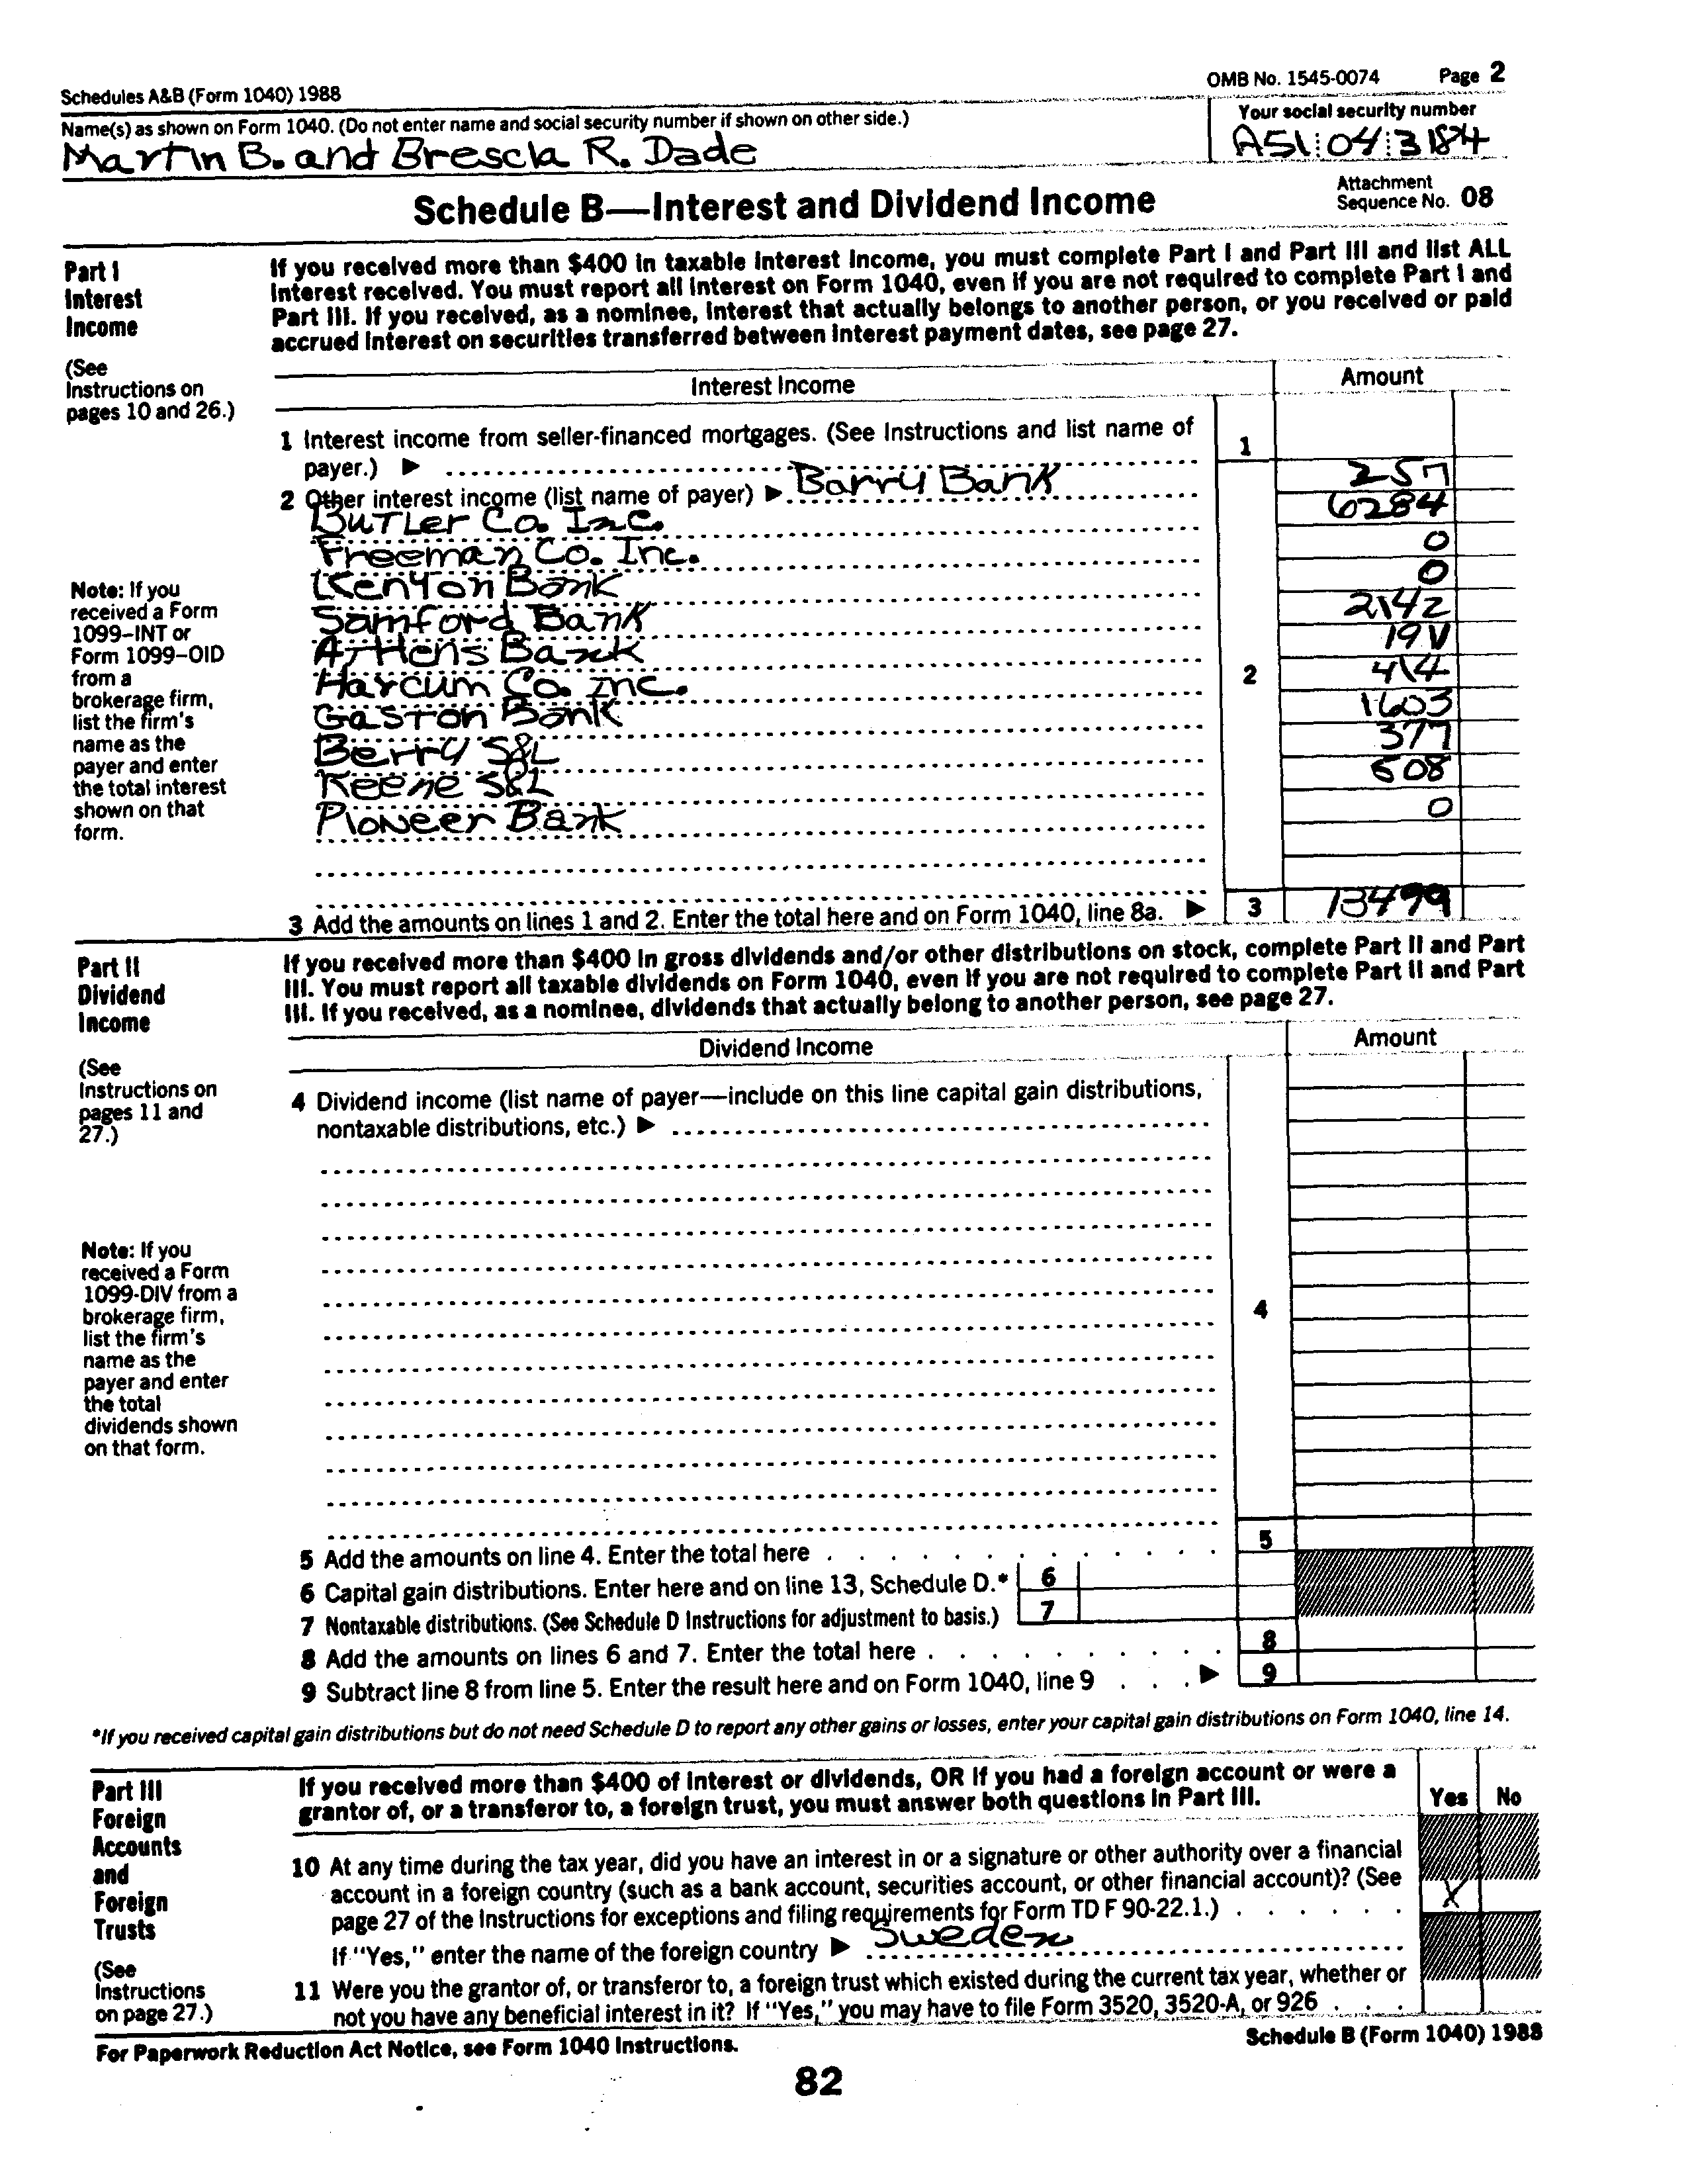 Schedules A&B (Form 1040) 1988 OMB No. 1545-0074 Page 2
Name(s) as shown on Form 1040. (Do not enter name and social security number if shown on other side.) Your social security number
Martin B. and Brescla R. Dade A51 04 3184
Schedule B—Interest and Dividend Income Attachment Sequence No. 08
Part I
Interest
Income
(See
Instructions on
pages 10 and 26.)
If you received more than $400 in taxable interest income, you must complete Part I and Part III and list ALL
interest received. You must report all interest on Form 1040, even if you are not required to complete Part I and
Part III. If you received, as a nominee, interest that actually belongs to another person, or you received or paid
accrued interest on securities transferred between interest payment dates, see page 27.
Interest Income Amount
1 Interest income from seller-financed mortgages. (See Instructions and list name of
payer.) ▶ 1
2 Other interest income (list name of payer) ▶ Barry Bank 257
Butler Co. Inc. 6284
Freeman Co. Inc. 0
Kenyon Bank 0
Samford Bank 2142
Athens Bank
Harcum Co. Inc. 2 414
Gaston Bank 1603
Berry S&L 377
Keene S&L 608
Pioneer Bank 0
Note: If you
received a Form
1099–INT or
Form 1099–OID
from a
brokerage firm,
list the firm's
name as the
payer and enter
the total interest
shown on that
form.
3 Add the amounts on lines 1 and 2. Enter the total here and on Form 1040, line 8a. ▶ 3 13499
Part II
Dividend
Income
(See
Instructions on
pages 11 and
27.)
If you received more than $400 in gross dividends and/or other distributions on stock, complete Part II and Part
III. You must report all taxable dividends on Form 1040, even if you are not required to complete Part II and Part
III. If you received, as a nominee, dividends that actually belong to another person, see page 27.
Dividend Income Amount
4 Dividend income (list name of payer—include on this line capital gain distributions,
nontaxable distributions, etc.) ▶
4
Note: If you
received a Form
1099-DIV from a
brokerage firm,
list the firm's
name as the
payer and enter
the total
dividends shown
on that form.
5 Add the amounts on line 4. Enter the total here . . . 5
6 Capital gain distributions. Enter here and on line 13, Schedule D.* 6
7 Nontaxable distributions. (See Schedule D Instructions for adjustment to basis.) 7
8 Add the amounts on lines 6 and 7. Enter the total here . . . 8
9 Subtract line 8 from line 5. Enter the result here and on Form 1040, line 9 . . . ▶ 9
*If you received capital gain distributions but do not need Schedule D to report any other gains or losses, enter your capital gain distributions on Form 1040, line 14.
Part III
Foreign
Accounts
and
Foreign
Trusts
(See
Instructions
on page 27.)
If you received more than $400 of interest or dividends, OR if you had a foreign account or were a
grantor of, or a transferor to, a foreign trust, you must answer both questions in Part III. Yes No
10 At any time during the tax year, did you have an interest in or a signature or other authority over a financial
account in a foreign country (such as a bank account, securities account, or other financial account)? (See
page 27 of the Instructions for exceptions and filing requirements for Form TD F 90-22.1.) . . . X
If "Yes," enter the name of the foreign country ▶ Sweden
11 Were you the grantor of, or transferor to, a foreign trust which existed during the current tax year, whether or
not you have any beneficial interest in it? If "Yes," you may have to file Form 3520, 3520-A, or 926 . . .
For Paperwork Reduction Act Notice, see Form 1040 Instructions. Schedule B (Form 1040) 1988
82